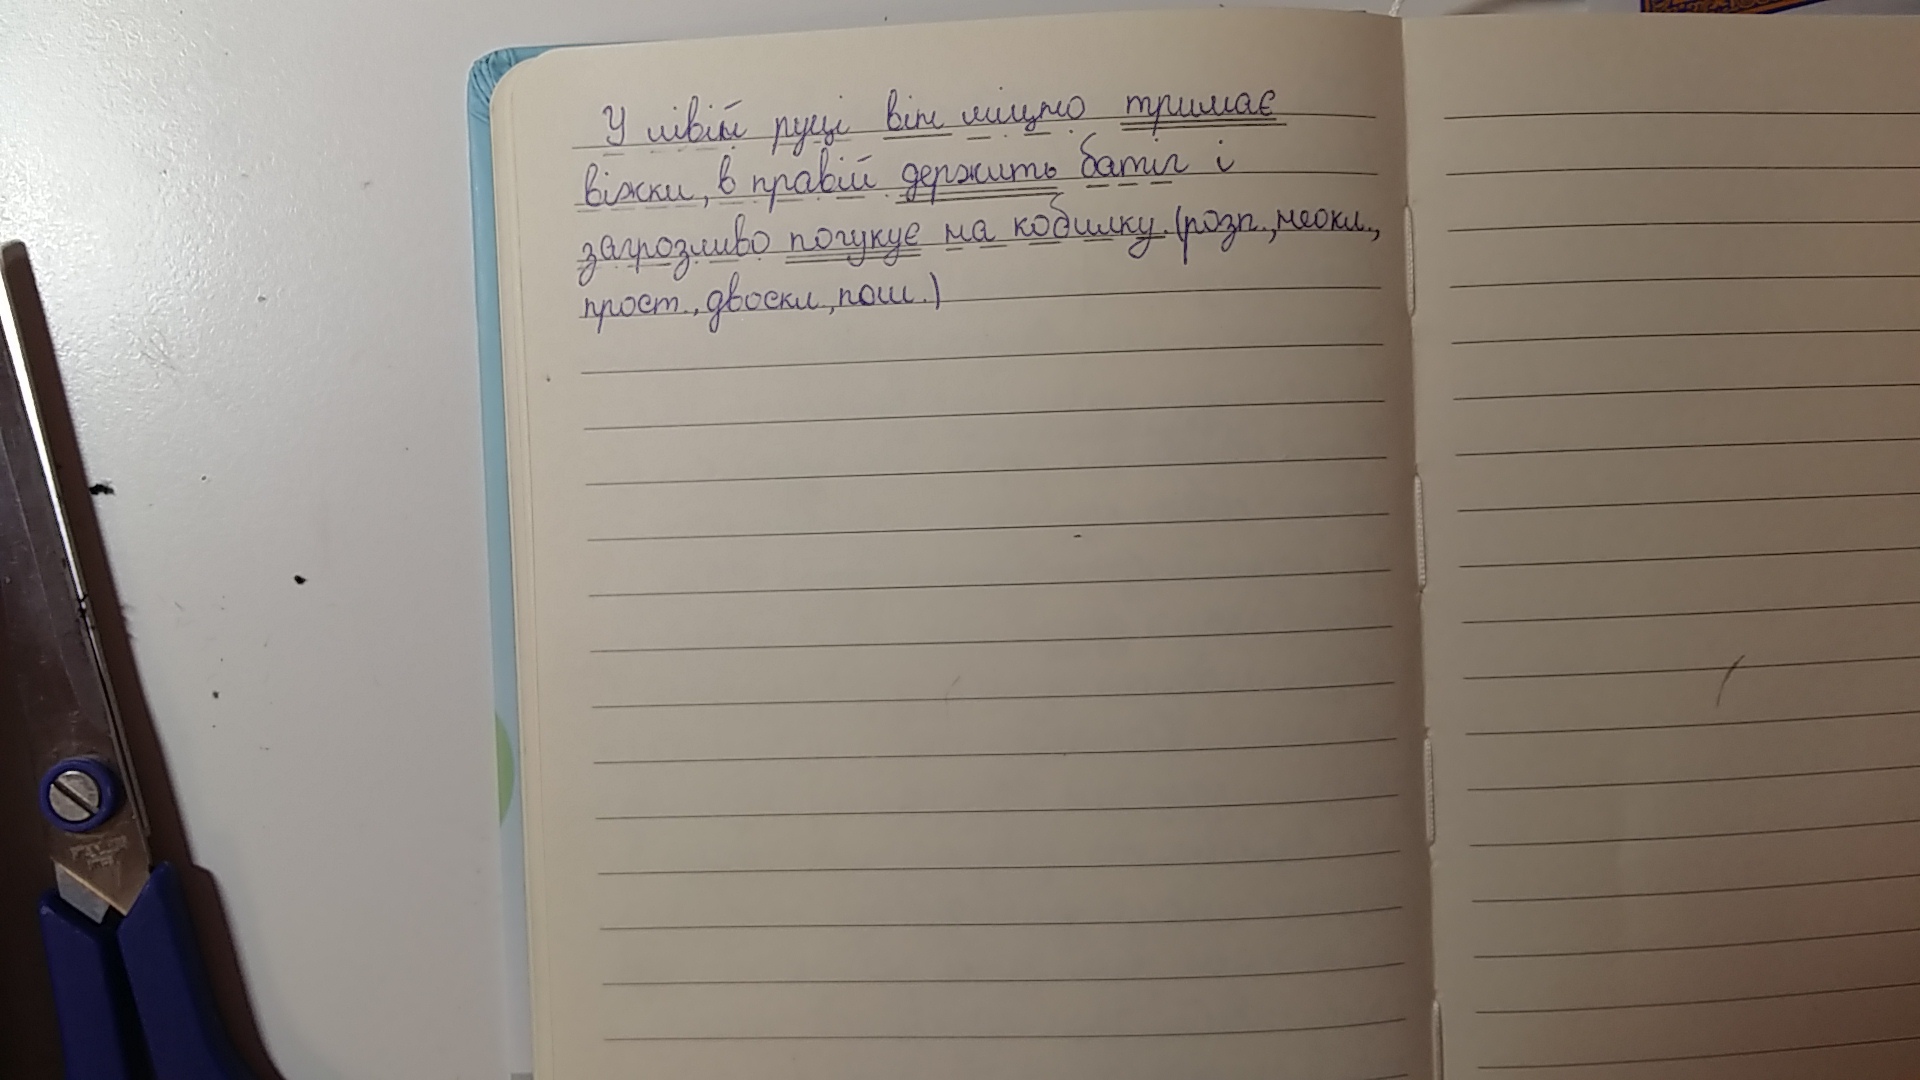 У лівій руці він міцно тримає
віжки, в правій держить батіг і
загрозливо погукує на кобилку. (розп., неокл.,
прост., двоскл, пош.)